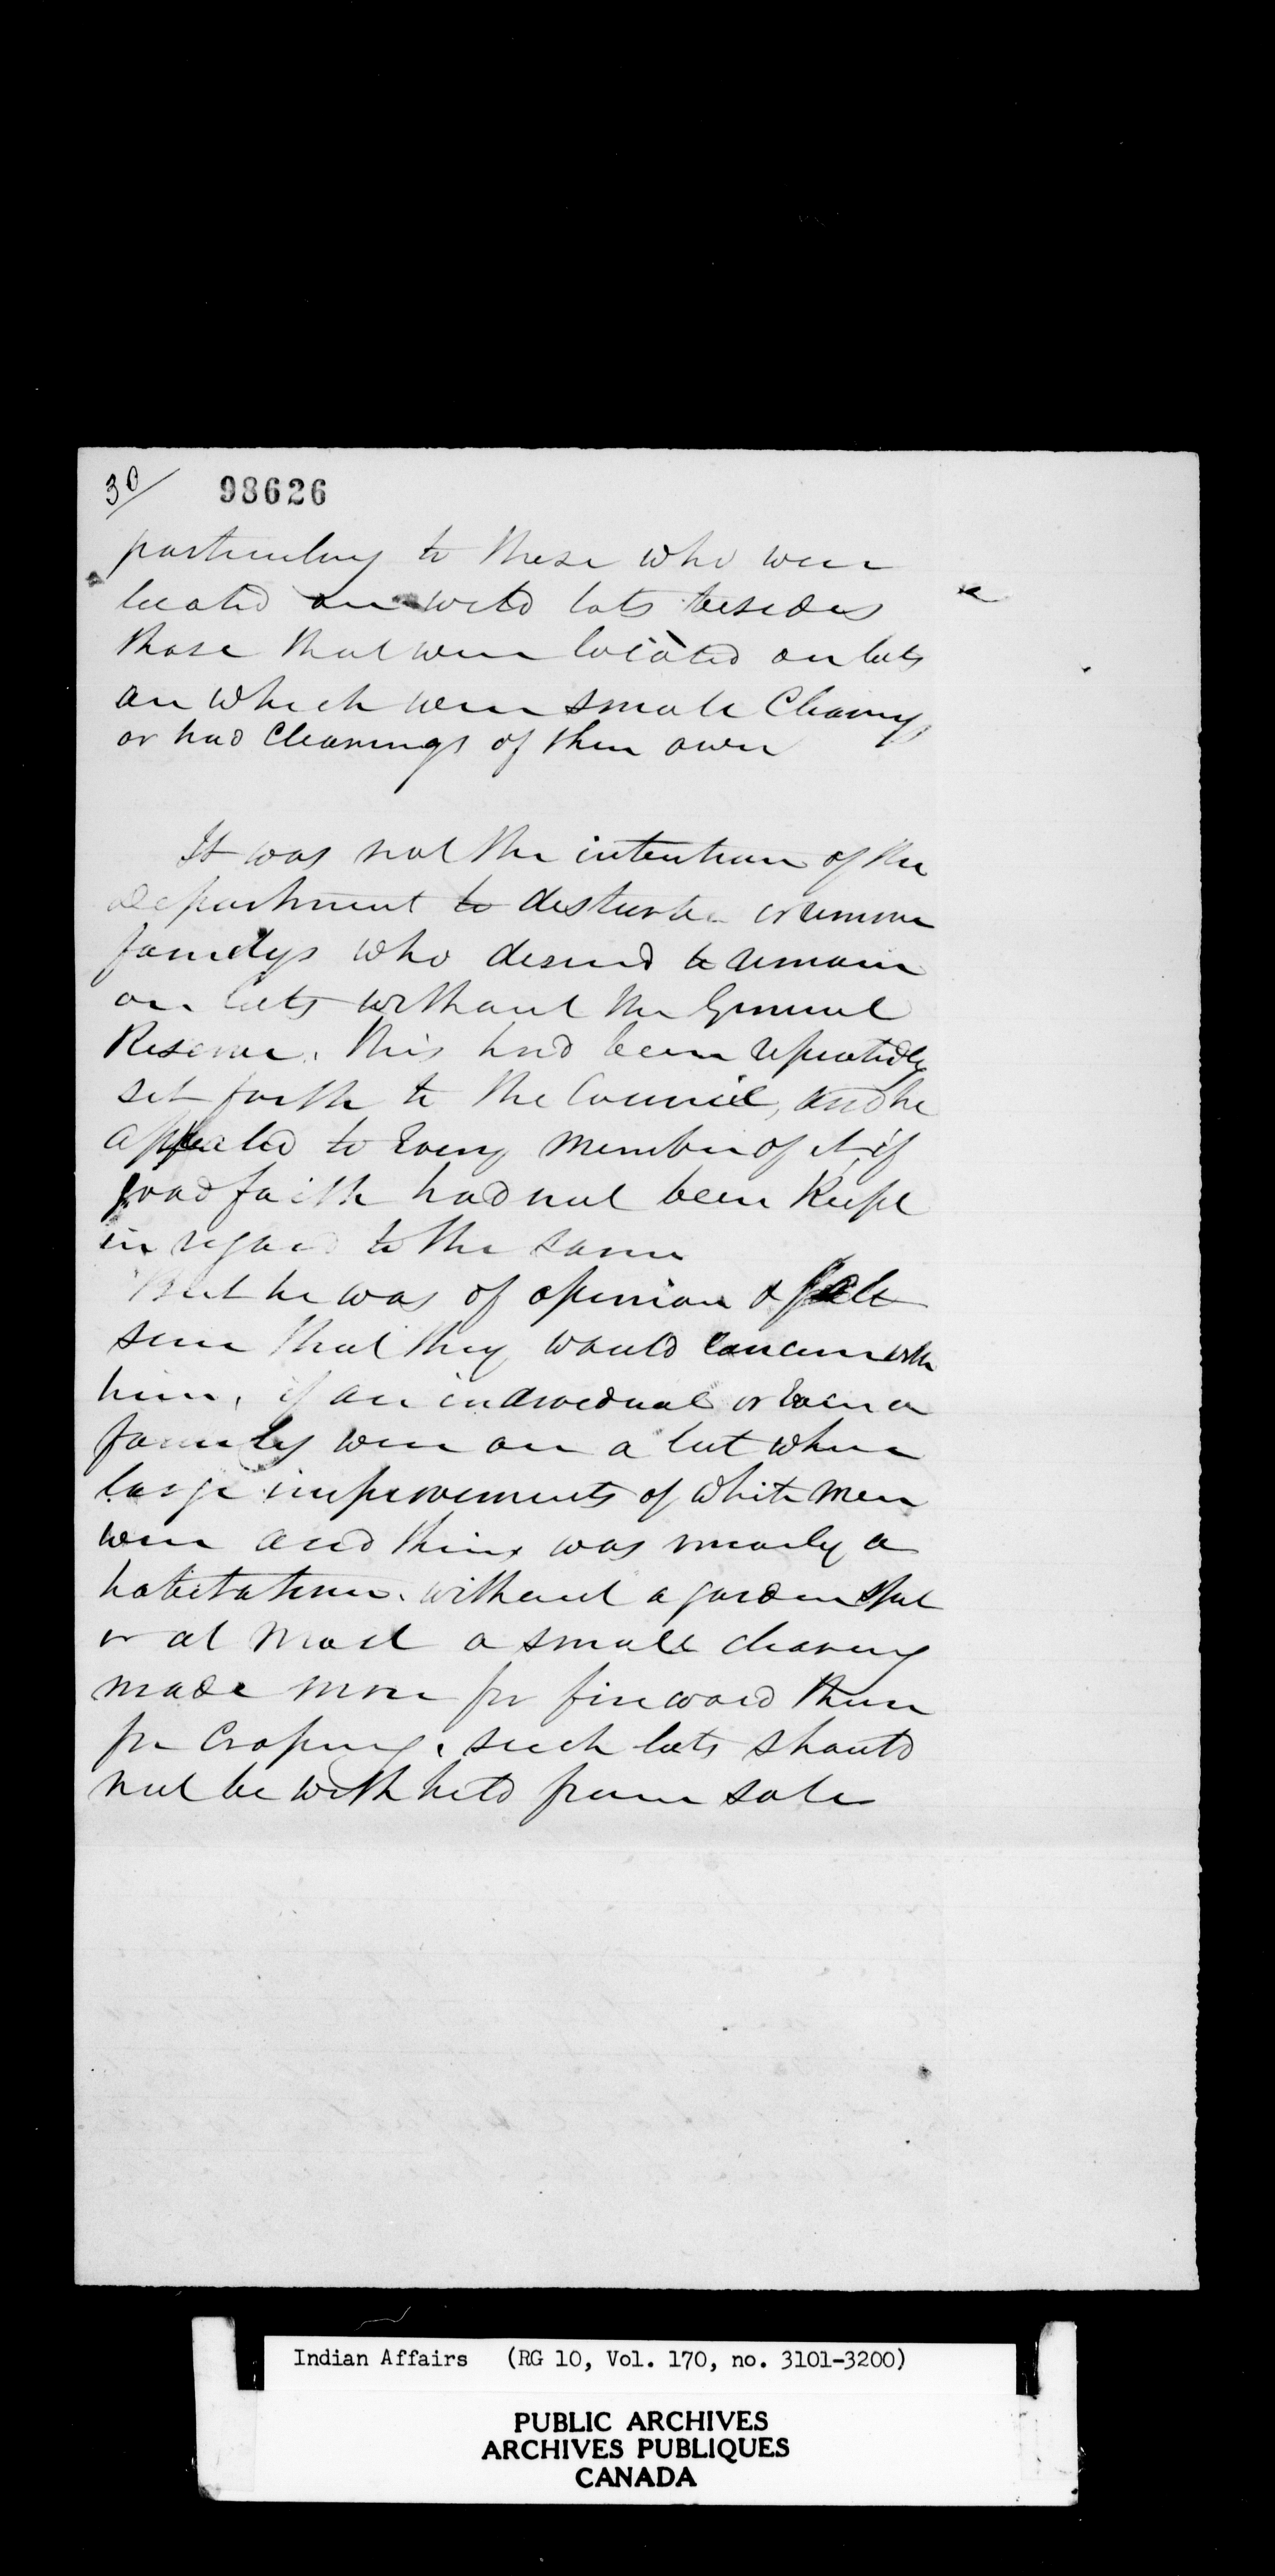 30/ 98626
particulary to those who were
located on wild lots besides
those that were located on lots
on which were small Clearings
or had Clearings of their own
It was not the intention of the
Department to disturbe or remove
familys who desired to remain
on lots without the General
Reserve, this had been repeatedly
set forth to the Council, and he
appealed to Every member of it if
good faith had not been Keept
in regard to the same
But he was of opinion & felt
sure that they would concur with
him, if an individual or Even a
family were on a lot where
large improvements of white men
were and theirs was mearly a
habitation. without a garden spot
or at most a small clearing
made more for fire wood than
for Croping, such lots should
not be withheld from sale
Indian Affairs (RG 10, Vol. 170, no. 3101-3200)
PUBLIC ARCHIVES
ARCHIVES PUBLIQUES
CANADA